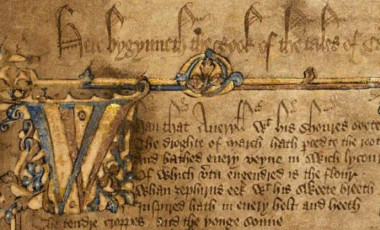 Here bygynneth the book of the tales of
Whan that Averyll wt his shoures soote
The droghte of march hath perced the root
And bathed every veyne in swich lycour
Of which vertu engendred is the flour
Whan zephirus eek wt his sweete breeth
Inspired hath in every holt and heeth
The tendre croppes and the yonge sonne